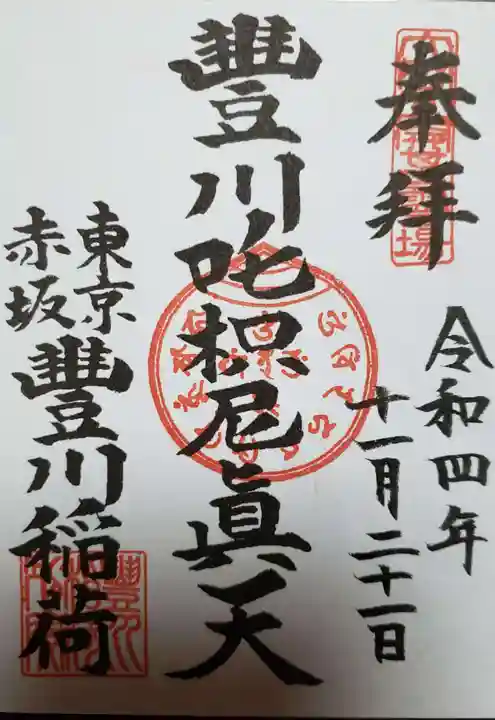 奉拝
令和四年
十一月二十一日
豐川吒枳尼眞天
東京
赤坂
豐川稲荷